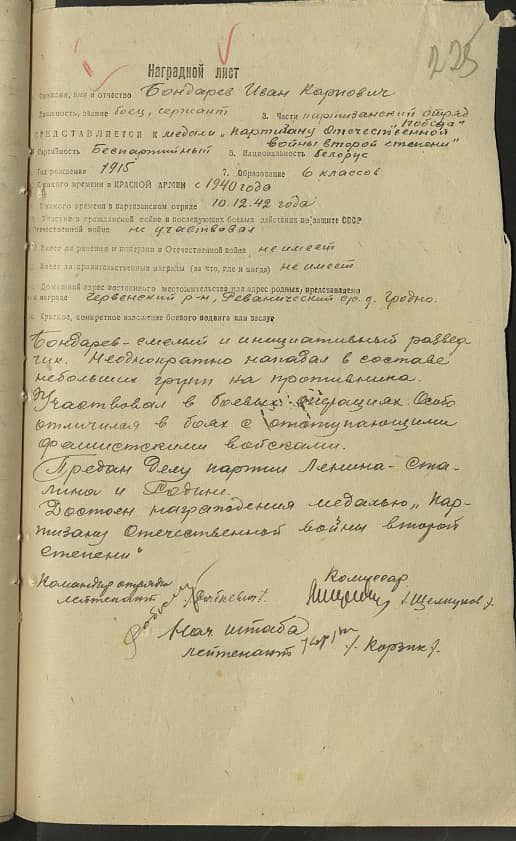 225
Наградной лист
Фамилия, имя и отчество Бондарев Иван Карпович
звание боец, сержант 3. Части партизанский отряд
"Победа"
ПРЕДСТАВЛЯЕТСЯ к медали "Партизану Отечественной
войны второй степени"
Партийность Беспартийный 5. Национальность белорус
Год рождения 1915 7. Образование 6 классов
С какого времени в КРАСНОЙ АРМИИ с 1940 года
С какого времени в партизанском отряде 10.12.42 года
Участие в гражданской войне и последующих боевых действиях по защите СССР
Отечественной войне не участвовал
Имеет ли ранения и контузии в Отечественной войне не имеет
Имеет ли правительственные награды (за что, где и когда) не имеет
Домашний адрес постоянного местожительства или адрес родных, представлено
к награде Червенский р-н, Реванический с/с. д. Гродно.
Краткое, конкретное изложение боевого подвига или заслуг
Бондарев - смелый и инициативный развед-
чик. Неоднократно нападал в составе
небольших групп на противника.
Участвовал в боевых операциях. Особо
отличился в боях с отступающими
фашистскими войсками.
Предан делу партии Ленина - Ста-
лина и Родине.
Достоин награждения медалью "Пар-
тизану Отечественной войны второй
степени"
Командир отряда Комиссар
лейтенант /Щелкунов/.
Нач. штаба
лейтенант /. Корзик /.